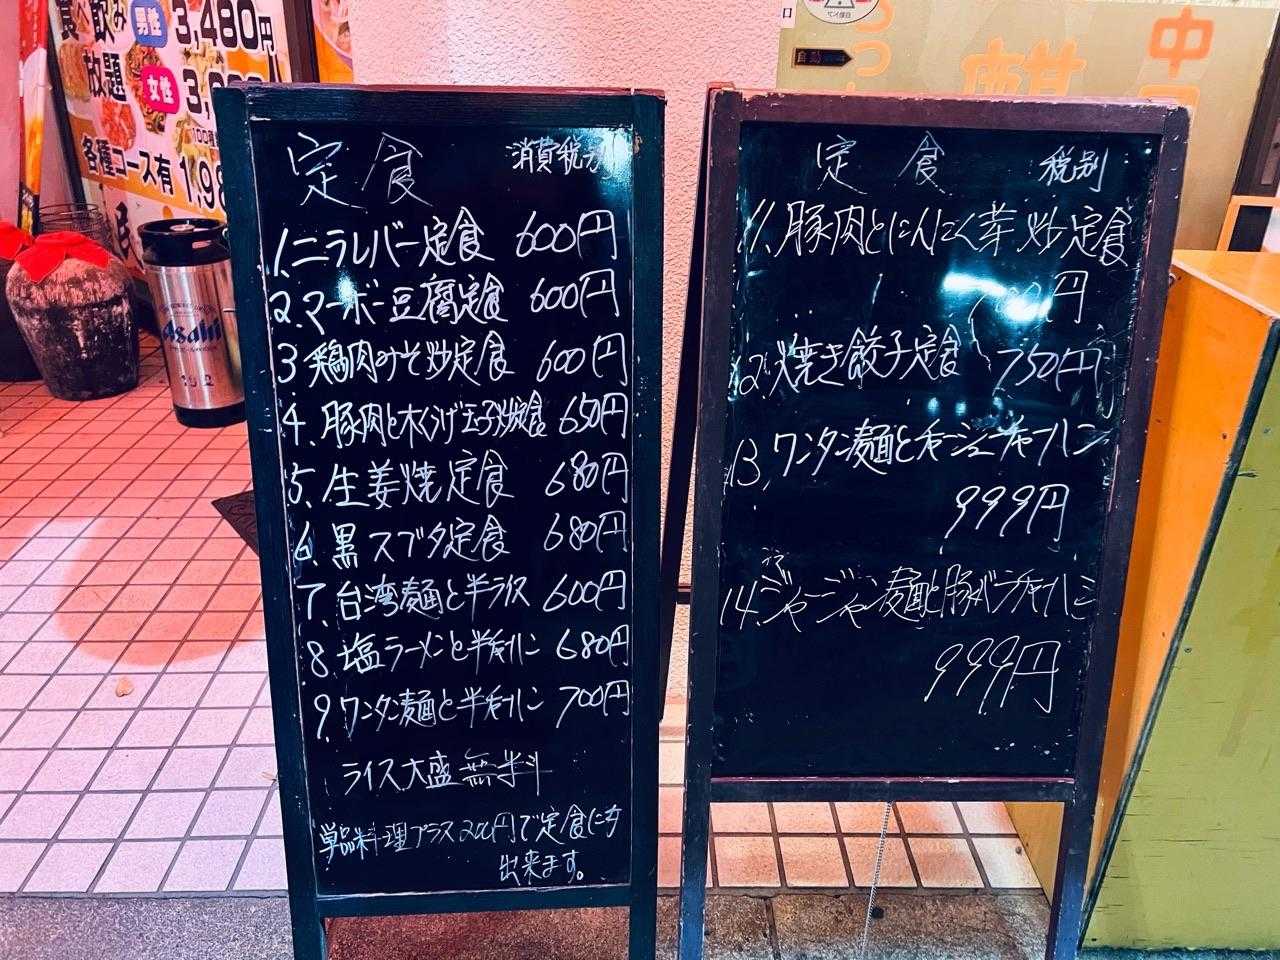 食べ飲み
放題
男性 3,480円
女性
各種コース有
Asahi
定食 消費税別
1.ニラレバー定食 600円
2.マーボー豆腐定食 600円
3 鶏肉のみそ炒定食 600円
4.豚肉と木くらげ玉子炒定食 650円
5.生姜焼定食 680円
6.黒スブタ定食 680円
7.台湾麺と半ライス 600円
8.塩ラーメンと半チャーハン 680円
9.ワンタン麺と半チャーハン 700円
ライス大盛無料
単品料理プラス200円で定食に
出来ます。
自動
中
定食 税別
11.豚肉とにんにく芽炒定食
円
12.焼き餃子定食 750円
13.ワンタン麺とチャーシューチャーハン
999円
14.ジャージャン麺と豚バラチャーハン
999円